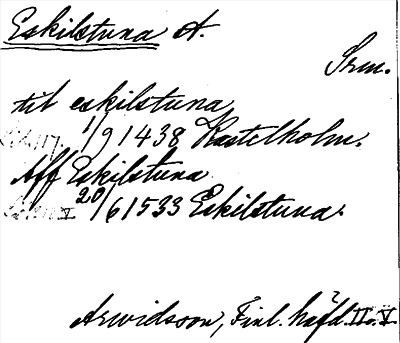 Eskilstuna A.
Srm.
tit eskilstuna
1/9 1438 Kastelholm.
Aff Eskilstuna
20/6 1533 Eskilstuna.
Arwidsson, Finl. häfd. II o. V.